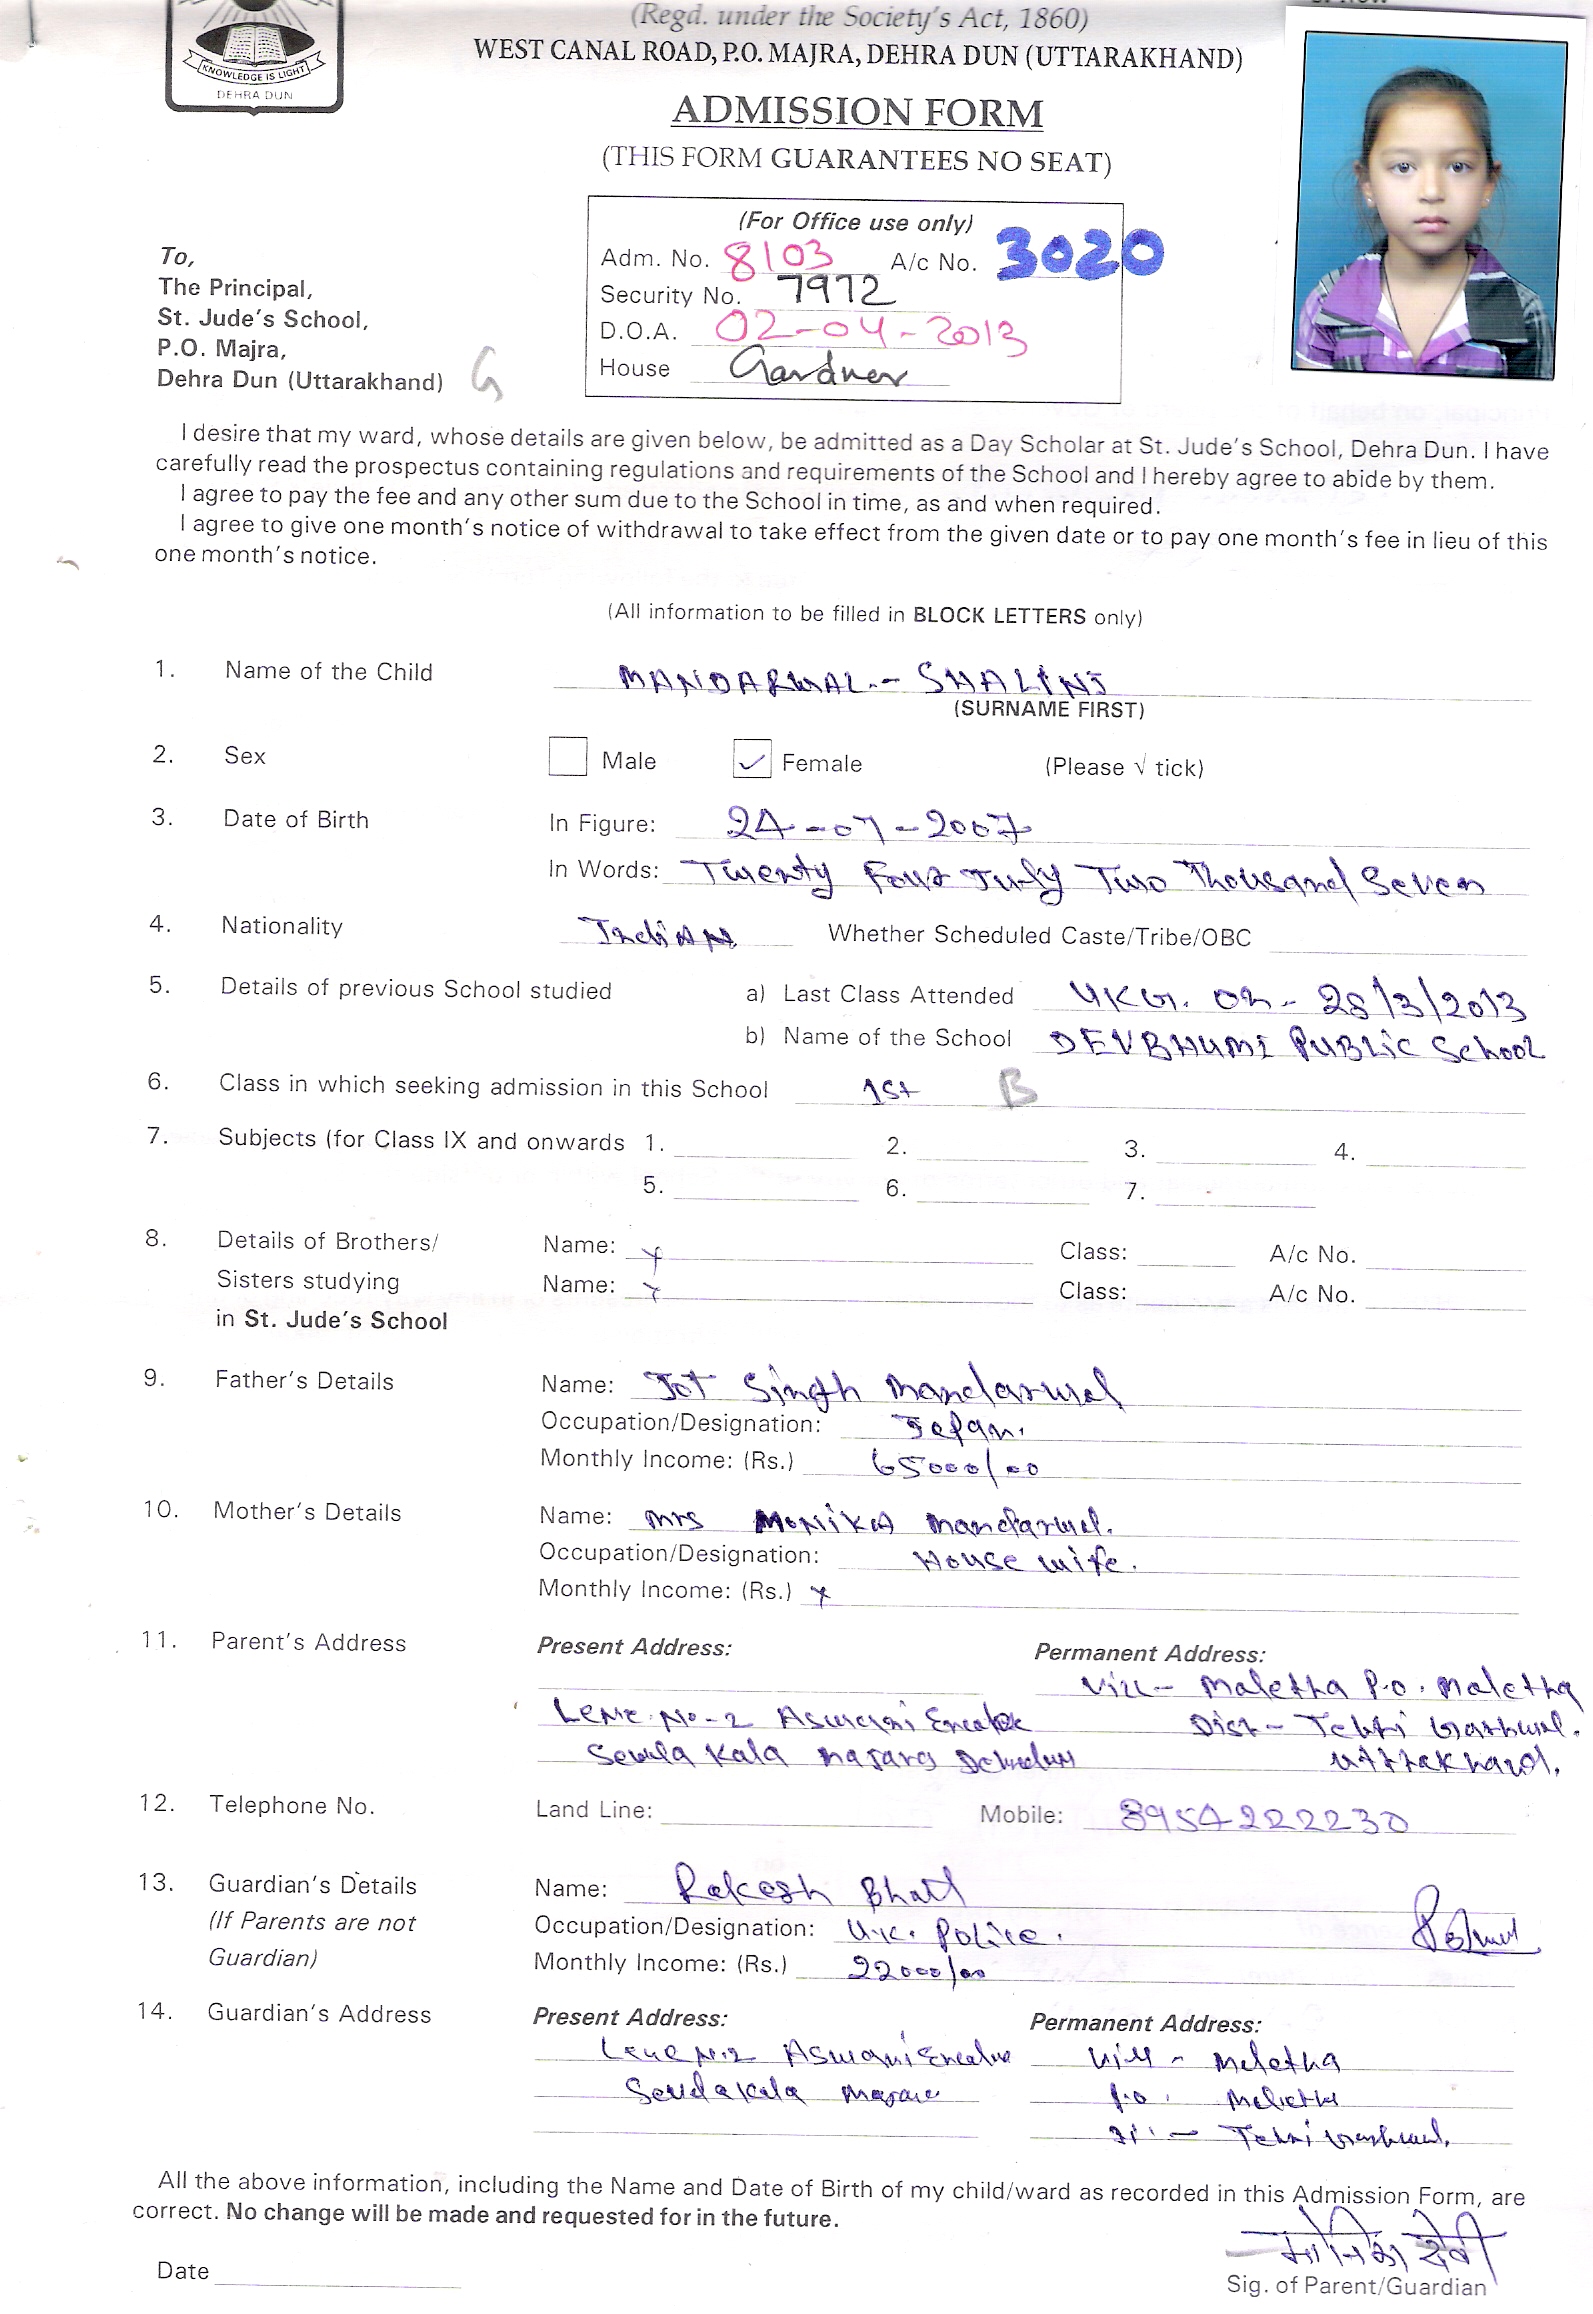 (Regd. under the Society's Act, 1860)
WEST CANAL ROAD, P.O. MAJRA, DEHRA DUN (UTTARAKHAND)
KNOWLEDGE IS LIGHT
DEHRA DUN
ADMISSION FORM
(THIS FORM GUARANTEES NO SEAT)
(For Office use only)
Adm. No. 8103 A/c No. 3020
Security No. 7972
D.O.A. 02-04-2013
House Gardner
To,
The Principal,
St. Jude's School,
P.O. Majra,
Dehra Dun (Uttarakhand) G
I desire that my ward, whose details are given below, be admitted as a Day Scholar at St. Jude's School, Dehra Dun. I have
carefully read the prospectus containing regulations and requirements of the School and I hereby agree to abide by them.
I agree to pay the fee and any other sum due to the School in time, as and when required.
I agree to give one month's notice of withdrawal to take effect from the given date or to pay one month's fee in lieu of this
one month's notice.
(All information to be filled in BLOCK LETTERS only)
1. Name of the Child MANDARWAL.- SHALINI
(SURNAME FIRST)
2. Sex Male ✓ Female (Please √ tick)
3. Date of Birth In Figure: 24-07-2007
In Words: Twenty Four July Two Thousand Seven
4. Nationality IndiAN Whether Scheduled Caste/Tribe/OBC
5. Details of previous School studied a) Last Class Attended UKG. on - 28/3/2013
b) Name of the School DEVBHUMI PUBLIC School
6. Class in which seeking admission in this School 1st B
7. Subjects (for Class IX and onwards 1. 2. 3. 4.
5. 6. 7.
8. Details of Brothers/ Name: x Class: A/c No.
Sisters studying Name: x Class: A/c No.
in St. Jude's School
9. Father's Details Name: Jot Singh Mandarwal
Occupation/Designation: Japan.
Monthly Income: (Rs.) 65000/00
10. Mother's Details Name: Mrs MONIKA Mandarwal.
Occupation/Designation: House wife.
Monthly Income: (Rs.) x
11. Parent's Address Present Address: Permanent Address:
Vill- Maletha P.O. Maletha
Lene No-2 Aswani Dist- Tehri Garhwal.
Sewla Kala Uttrakhand.
12. Telephone No. Land Line: Mobile: 8954222230
13. Guardian's Details Name: Rakesh Bhatt
(If Parents are not Occupation/Designation: U.K. Police.
Guardian) Monthly Income: (Rs.) 22000/00
14. Guardian's Address Present Address: Permanent Address:
Lene No.2 Aswani Vill - Meletha
Sewla Kala P.O. Meletha
Tehri Garhwal.
All the above information, including the Name and Date of Birth of my child/ward as recorded in this Admission Form, are
correct. No change will be made and requested for in the future.
मोनिका देवी
Date Sig. of Parent/Guardian